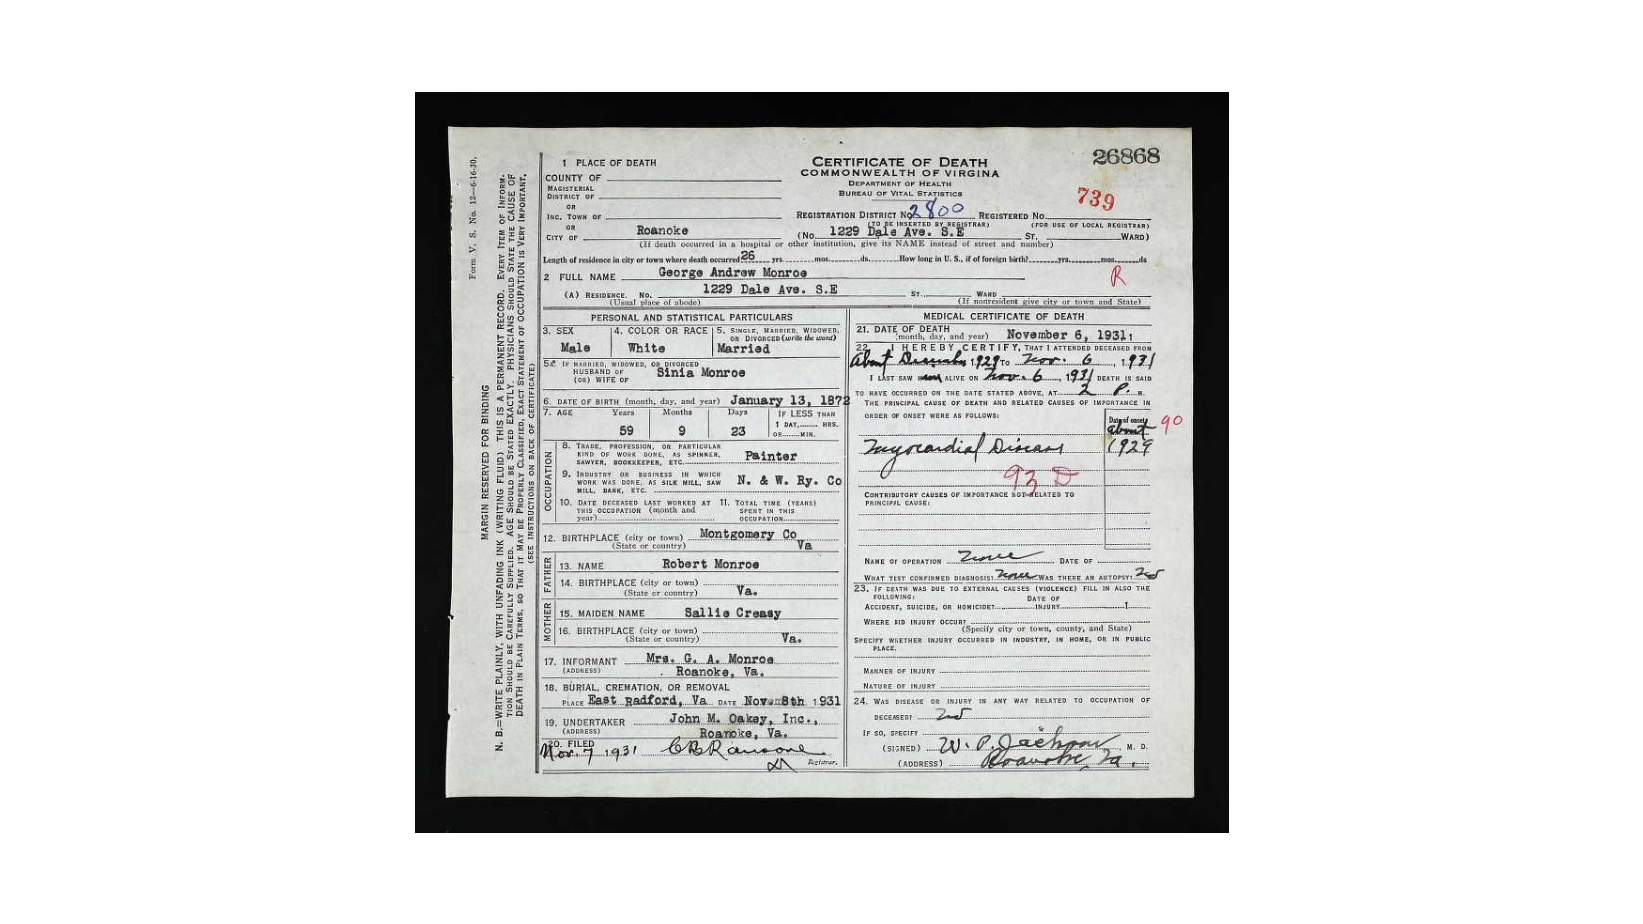 Form V. S. No. 12—6-16-30.
MARGIN RESERVED FOR BINDING
N. B.—WRITE PLAINLY, WITH UNFADING INK (WRITING FLUID) THIS IS A PERMANENT RECORD. EVERY ITEM OF INFORM-
TION SHOULD BE CAREFULLY SUPPLIED. AGE SHOULD BE STATED EXACTLY. PHYSICIANS SHOULD STATE THE CAUSE OF
DEATH IN PLAIN TERMS, SO THAT IT MAY BE PROPERLY CLASSIFIED. EXACT STATEMENT OF OCCUPATION IS VERY IMPORTANT.
(SEE INSTRUCTIONS ON BACK OF CERTIFICATE)
26868
CERTIFICATE OF DEATH
COMMONWEALTH OF VIRGINA
DEPARTMENT OF HEALTH
BUREAU OF VITAL STATISTICS
739
1 PLACE OF DEATH
COUNTY OF
MAGISTERIAL
DISTRICT OF
OR
INC. TOWN OF
OR
CITY OF Roanoke
REGISTRATION DISTRICT No. 2800 REGISTERED No.
(TO BE INSERTED BY REGISTRAR) (FOR USE OF LOCAL REGISTRAR)
(No. 1229 Dale Ave. S.E ST. WARD)
(If death occurred in a hospital or other institution, give its NAME instead of street and number)
Length of residence in city or town where death occurred 26 yrs. mos. ds. How long in U. S., if of foreign birth? yrs. mos. ds
2 FULL NAME George Andrew Monroe
R
(A) RESIDENCE. No. 1229 Dale Ave. S.E ST. WARD
(Usual place of abode) (If nonresident give city or town and State)
PERSONAL AND STATISTICAL PARTICULARS
3. SEX 4. COLOR OR RACE 5. SINGLE, MARRIED, WIDOWED,
OR DIVORCED (write the word)
Male White Married
5A IF MARRIED, WIDOWED, OR DIVORCED
HUSBAND OF
(OR) WIFE OF Sinia Monroe
6. DATE OF BIRTH (month, day, and year) January 13, 1872
7. AGE Years Months Days IF LESS THAN
1 DAY, HRS.
OR MIN.
59 9 23
OCCUPATION
8. TRADE, PROFESSION, OR PARTICULAR
KIND OF WORK DONE, AS SPINNER,
SAWYER, BOOKKEEPER, ETC. Painter
9. INDUSTRY OR BUSINESS IN WHICH
WORK WAS DONE, AS SILK MILL, SAW
MILL, BANK, ETC. N. & W. Ry. Co
10. DATE DECEASED LAST WORKED AT
THIS OCCUPATION (month and
year)
11. TOTAL TIME (YEARS)
SPENT IN THIS
OCCUPATION
12. BIRTHPLACE (city or town) Montgomery Co
(State or country) Va
FATHER
13. NAME Robert Monroe
14. BIRTHPLACE (city or town)
(State or country) Va.
MOTHER
15. MAIDEN NAME Sallie Creasy
16. BIRTHPLACE (city or town)
(State or country) Va.
17. INFORMANT Mrs. G. A. Monroe
(ADDRESS) Roanoke, Va.
18. BURIAL, CREMATION, OR REMOVAL
PLACE East Radford, Va DATE Nov. 8th 1931
19. UNDERTAKER John M. Oakey, Inc.,
(ADDRESS) Roanoke, Va.
20. FILED
Nov. 7 1931 C B Ransone
Registrar.
MEDICAL CERTIFICATE OF DEATH
21. DATE OF DEATH
(month, day, and year) November 6, 1931
22. I HEREBY CERTIFY, THAT I ATTENDED DECEASED FROM
About December 1929 TO Nov. 6, 1931
I LAST SAW him ALIVE ON Nov. 6, 1931 DEATH IS SAID
TO HAVE OCCURRED ON THE DATE STATED ABOVE, AT 2 P. M.
THE PRINCIPAL CAUSE OF DEATH AND RELATED CAUSES OF IMPORTANCE IN
ORDER OF ONSET WERE AS FOLLOWS:
Date of onset
about 90
Myocardial Disease 1929
93 D
CONTRIBUTORY CAUSES OF IMPORTANCE NOT RELATED TO
PRINCIPAL CAUSE:
NAME OF OPERATION None DATE OF
WHAT TEST CONFIRMED DIAGNOSIS? None WAS THERE AN AUTOPSY? No
23. IF DEATH WAS DUE TO EXTERNAL CAUSES (VIOLENCE) FILL IN ALSO THE
FOLLOWING:
ACCIDENT, SUICIDE, OR HOMICIDE? DATE OF
INJURY 1
WHERE DID INJURY OCCUR?
(Specify city or town, county, and State)
SPECIFY WHETHER INJURY OCCURRED IN INDUSTRY, IN HOME, OR IN PUBLIC
PLACE.
MANNER OF INJURY
NATURE OF INJURY
24. WAS DISEASE OR INJURY IN ANY WAY RELATED TO OCCUPATION OF
DECEASED? No
IF SO, SPECIFY
(SIGNED) W. P. Jackson M. D.
(ADDRESS) Roanoke, Va.